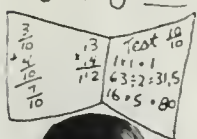 3/10
+ 4/10
7/10
,3
× ,4
,12
Test 10/10
1 · 1 = 1
63 : 2 = 31,5
16 · 5 = 80